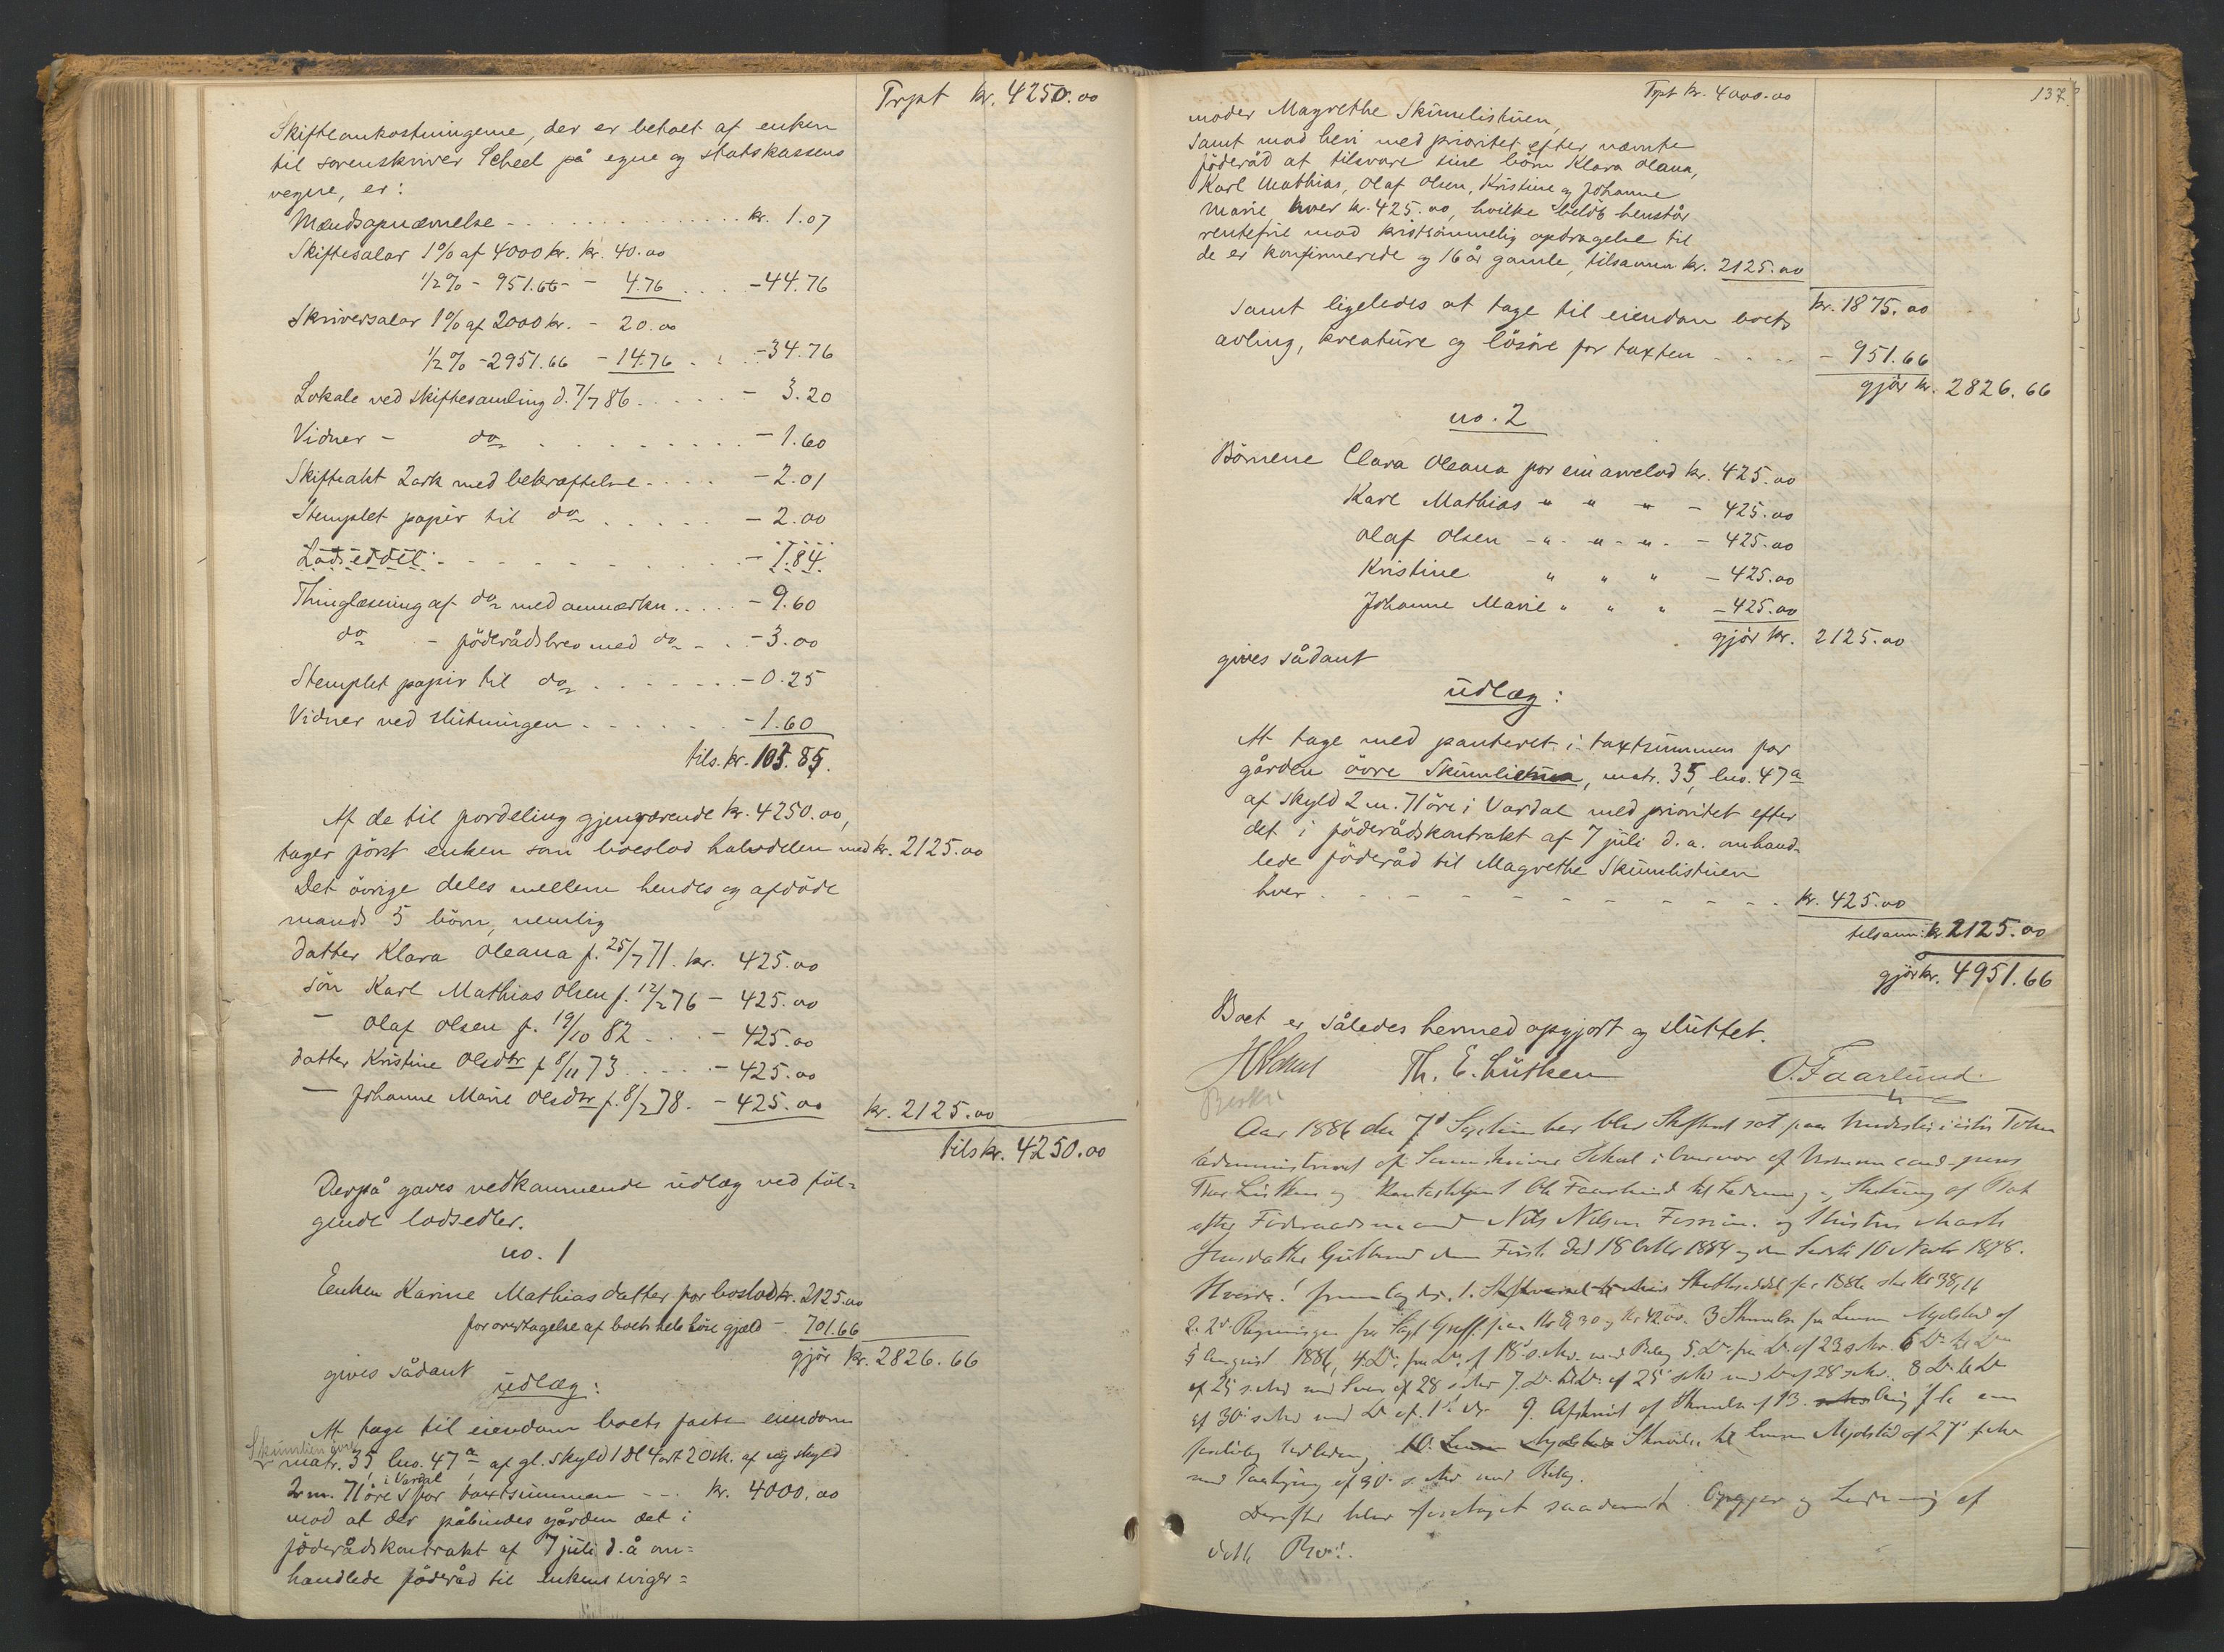 Trpt kr. 4250.00
Skifteomkostningerne, der er betalt af enken
til sorenskriver Scheel på egne og statskassens
vegne, er:
Mændsopnævnelse - . . . . . . kr. 1.07
Skiftesalar 1% af 4000 kr. kr. 40.00
1/2% - 951.66 - - 4.76 . . . - 44.76
Skriversalar 1% af 2000 kr. - 20.00
1/2% - 2951.66 - 14.76 . . . - 34.76
Lokale ved skiftesamling d. 7/7 86 . . . . . - 3.20
Vidner - do . . . . . . . . - 1.60
Skifteakt 2 ark med bekræftelse . . . . - 2.01
Stemplet papir til do . . . . . - 2.00
Lodseddel . - - - - - - - 1.84
Thinglæsning af do med anmærkn . . . . . - 9.60
do - föderådsbrev med do - . . - 3.00
Stemplet papir til do . . . . . . . - 0.25
Vidner ved slutningen . . . . . . - 1.60
tils. kr. 103.85.
Af de til fordeling gjenværende kr. 4250.00,
tager först enken som boeslod halvdelen med kr. 2125.00
Det övrige deles mellem hendes og afdöde
mands 5 börn, nemlig
datter Klara Oleana f. 25/7 71. kr. 425.00
sön Karl Mathias Olsen f. 12/2 76 - 425.00
— Olaf Olsen f. 19/10 82 . . . - 425.00
datter Kristine Olsdtr f 8/11 73 . . . . . - 425.00
— Johanne Marie Olsdtr f. 8/2 78. - 425.00 kr. 2125.00
tils kr. 4250.00
Derpå gaves vedkommende udlæg ved föl=
gende lodsedler.
no. 1
Enken Karine Mathiasdatter for boslod kr. 2125.00
for overtagelse af boets hele löse gjæld - 701.66
gjör kr. 2826.66
gives sådant
udlæg:
At tage til eiendom boets faste eiendom
Skumlien övre
matr. 35 lno. 47a af gl. skyld 1 dl 4 ort 20 sk. af ny skyld
2 m. 71 öre i Vardal for taxtsummen - - . kr. 4000.00
mod at der påbindes gården det i
föderådskontrakt af 7 juli d. å om=
handlede föderåd til enkens sviger=
137
Trpt kr. 4000.00
moder Magrethe Skumlistuen,
samt mod heri med prioritet efter nævnte
föderåd at tilsvare sine börn Klara Oleana,
Karl Mathias, Olaf Olsen, Kristine og Johanne
Marie hver kr. 425.00, hvilke belöb henstår
rentefrie mod kristsömmelig opdragelse til
de er konfirmerede og 16 år gamle, tilsammen kr. 2125.00
kr. 1875.00
samt ligeledes at tage til eiendom boets
avling, kreature og lösöre for taxten - . . . - 951.66
gjör kr. 2826.66
no. 2
Börnene Clara Oleana for sin arvelod kr. 425.00
Karl Mathias " " " - 425.00
Olaf Olsen - " - " - " - 425.00
Kristine " " " - 425.00
Johanne Marie " " " - 425.00
gjör kr. 2125.00
gives sådant
udlæg:
At tage med panteret i taxtsummen for
gården övre Skumlistuen, matr. 35, lno. 47a
af skyld 2 m. 71 öre i Vardal med prioritet efter
det i föderådskontrakt af 7 juli d. a. omhand=
lede föderåd til Magrethe Skumlistuen
hver . . . - - - - - - - - . kr. 425.00
tilsam: kr. 2125.00
gjör kr. 4951.66
Boet er således hermed opgjort og sluttet.
Th. E. Lütken O. Faarlund
Aar 1886 den 7de September blev Skifteret sat paa
administreret af Sorenskriver Scheel i Overvær af
Lütken og Ole Faarlund til og Slutning af Boet
efter Föderaadsmand Nils Nilsen og
den Förste död 18 1884 og den Sidste 10 1878.
1. 1886 stor Kr 38,16
2. 2 Regninger fra og Kr 42.00. 3 Skrivelse fra
5 August 1886, 4. Do fra Do af 18 s. Md. med Bilag 5. Do fra Do af 23 s. Md. 6 Do til Do
af 25 s. Md med Svar af 28 s Md 7. Do til Do af 25 s Md med Do af 28 s Md. 8 Do til Do
af 30 s Md med Do af 1 9. Afskrift af Skrivelse af 13.
10. Skrivelse til af 27
med af 30 s. Md med Bilag.
Derefter blev foretaget saadant Opgjör og af
dette Bo: